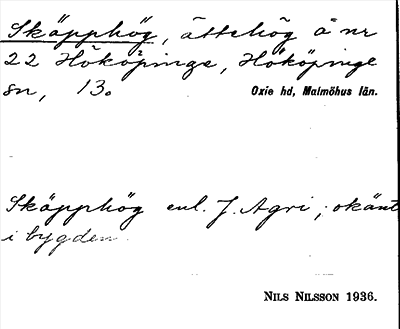 Skäpphög, ättehög å nr
22 Hököpinge, Hököpinge
sn, 13.
Oxie hd, Malmöhus län.
Skäpphög enl. J. Agri; okänt
i bygden.
NILS NILSSON 1936.